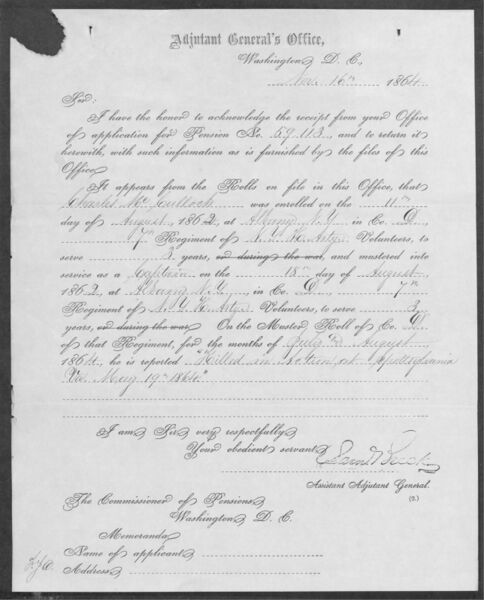 Adjutant General's Office,
Washington, D. C.,
Nov. 16th 1864
Sir:
I have the honor to acknowledge the receipt from your Office
of application for Pension No. 59,113, and to return it
herewith, with such information as is furnished by the files of this
Office.
It appears from the Rolls on file in this Office, that
Charles McCulloch was enrolled on the 11th
day of August, 1862, at Albany N.Y. in Co. D,
7th Regiment of N.Y. H. Arty Volunteers, to
serve 3 years, or during the war, and mustered into
service as a Captain on the 18th day of August,
1862, at Albany N.Y., in Co. D, 7th
Regiment of N.Y. H. Arty Volunteers, to serve 3
years, or during the war. On the Muster Roll of Co. D
of that Regiment, for the months of July & August
1864, he is reported "Killed in Action at Spottsylvania
Va. May 19th 1864"
I am Sir, very respectfully,
Your obedient servant,
Saml Breck
Assistant Adjutant General.
(2.)
The Commissioner of Pensions,
Washington, D. C.
Memoranda
Name of applicant
Address